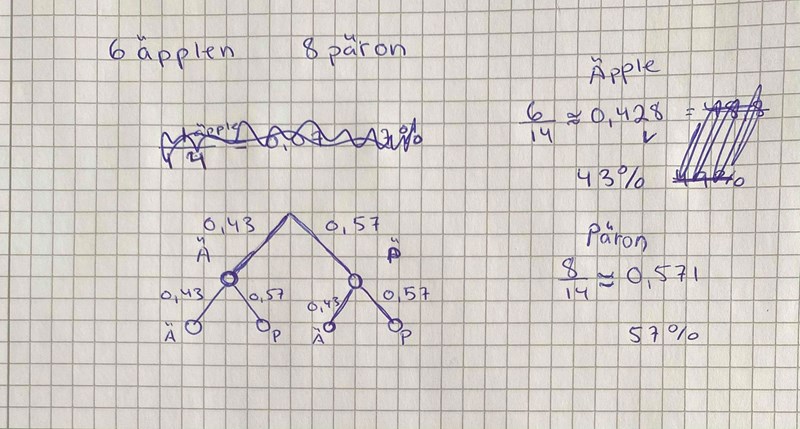 6 äpplen 8 päron
Äpple
6/14 ≈ 0,428 =
43%
0,43 0,57
Ä P
0,43 0,57 0,43 0,57
Ä P Ä P
Päron
8/14 ≈ 0,571
57%